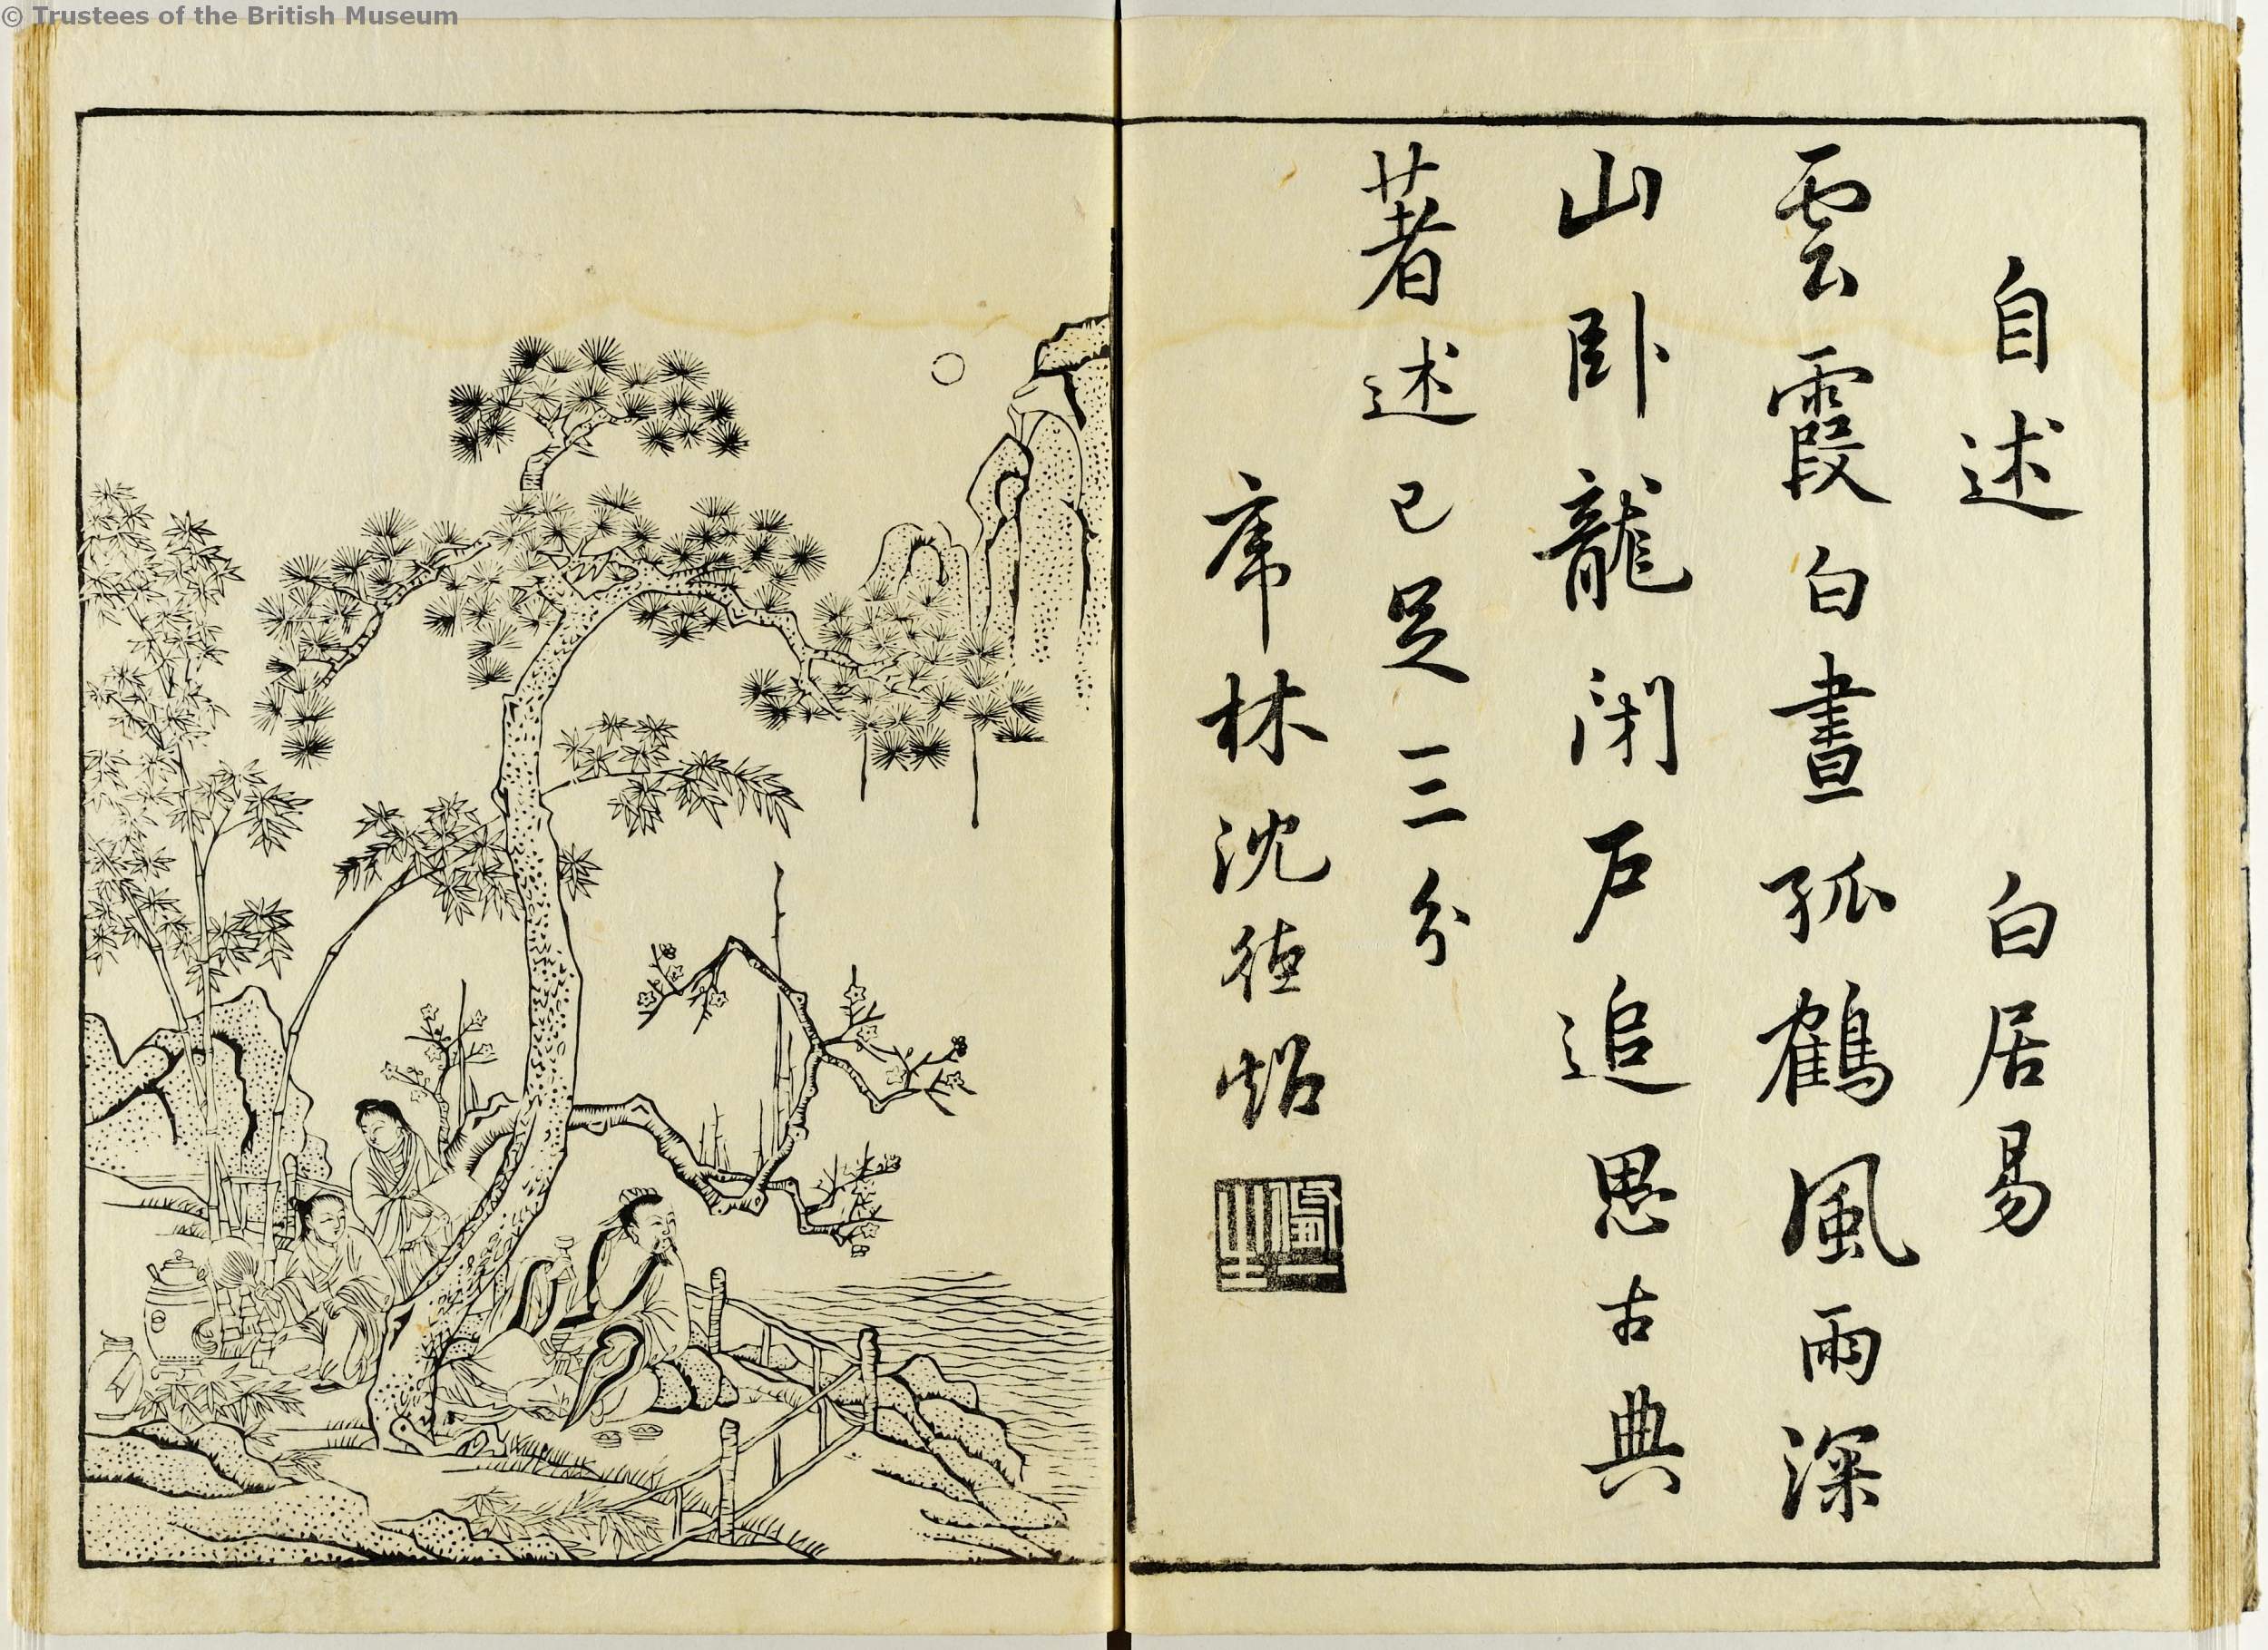 © Trustees of the British Museum
自述 白居易
雲霞白晝孤鶴風雨深
山卧龍閉户追思古典
著述已足三分
虎林沈德炤